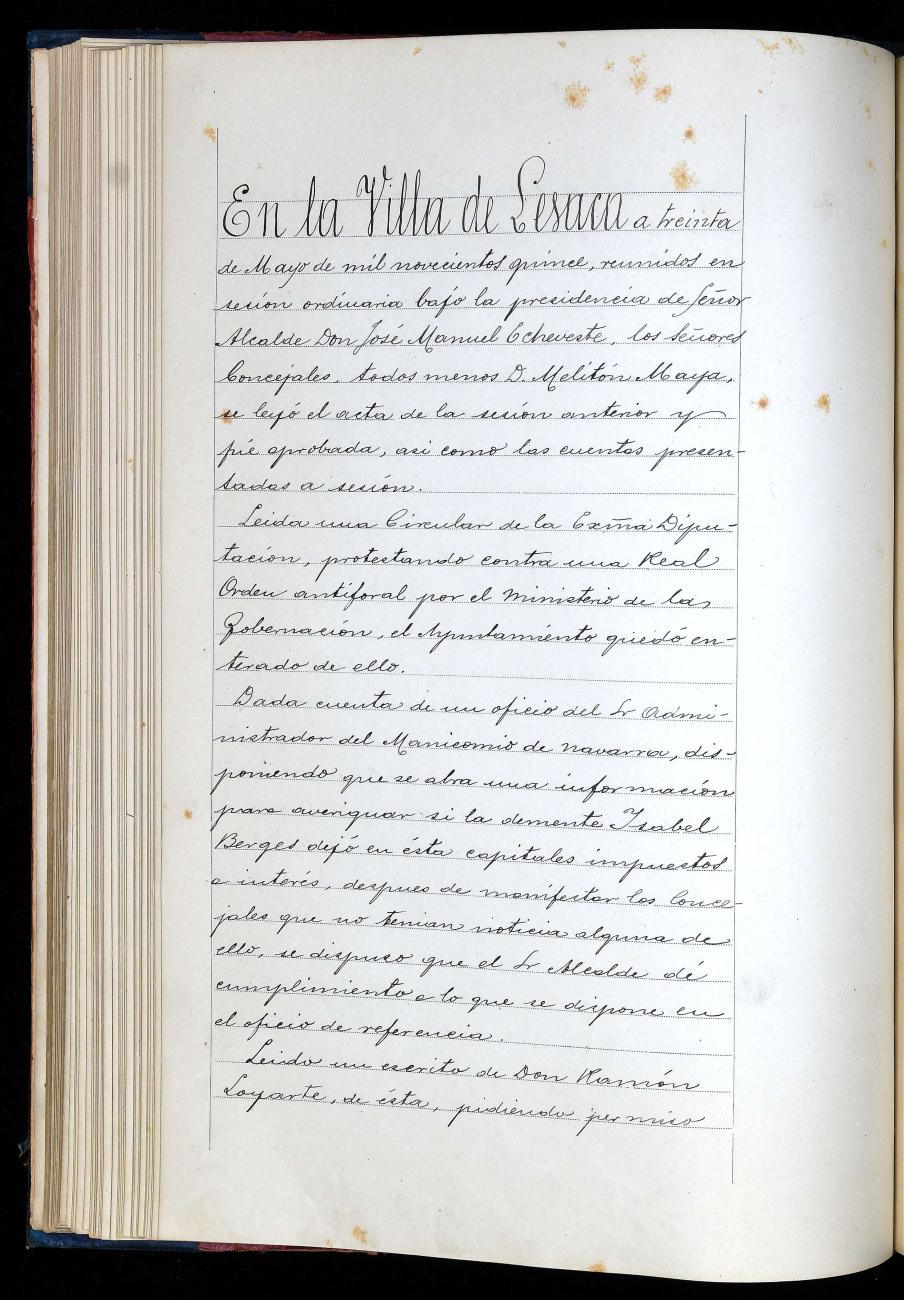 En la Villa de Lesaca a treinta
de Mayo de mil novecientos quince, reunidos en
sesión ordinaria bajo la presidencia de Señor
Alcalde Don José Manuel Echeveste, los Señores
Concejales, todos menos D. Melitón Maya,
se leyó el acta de la sesión anterior y
fué aprobada, asi como las cuentas presen-
tadas a sesión.
Leida una Circular de la Exma Dipu-
tación, protestando contra una Real
Orden antiforal por el Ministerio de la
Gobernación, el Ayuntamiento quedó en-
terado de ello.
Dada cuenta de un oficio del Sr Admi-
nistrador del Manicomio de Navarra, dis-
poniendo que se abra una información
para averiguar si la demente Isabel
Berges dejó en ésta capitales impuestos
a interés, despues de manifestar los Conce-
jales que no tenian noticia alguna de
ello, se dispuso que el Sr Alcalde dé
cumplimiento a lo que se dispone en
el oficio de referencia.
Leido un escrito de Don Ramón
Loyarte, de ésta, pidiendo permiso